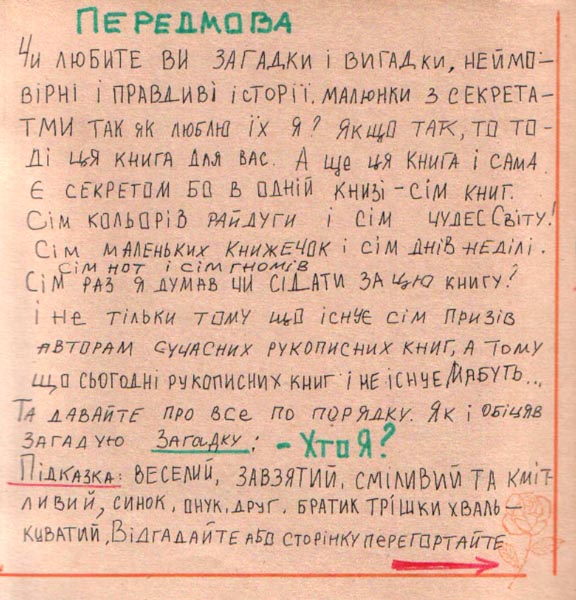 ПЕРЕДМОВА
Чи любите ви загадки і вигадки, неймо-
вірні і правдиві історії. малюнки з секрета-
тми так як люблю їх я? Якщо так, то то-
ді ця книга для вас. А ще ця книга і сама
є секретом бо в одній книзі - сім книг.
Сім кольорів райдуги і сім чудес Світу!
Сім маленьких книжечок і сім днів неділі.
сім нот і сім гномів
Сім раз я думав чи сідати за цю книгу?
і не тільки тому що існує сім призів
авторам сучасних рукописних книг, а тому
що сьогодні рукописних книг і не існує Мабуть...
Та давайте про все по порядку. Як і обіцяв
загадую Загадку: - Хто Я?
Підказка: веселий, завзятий, сміливий та кміт-
ливий, синок, онук, друг, братик трішки хваль-
куватий, Відгадайте або сторінку перегортайте